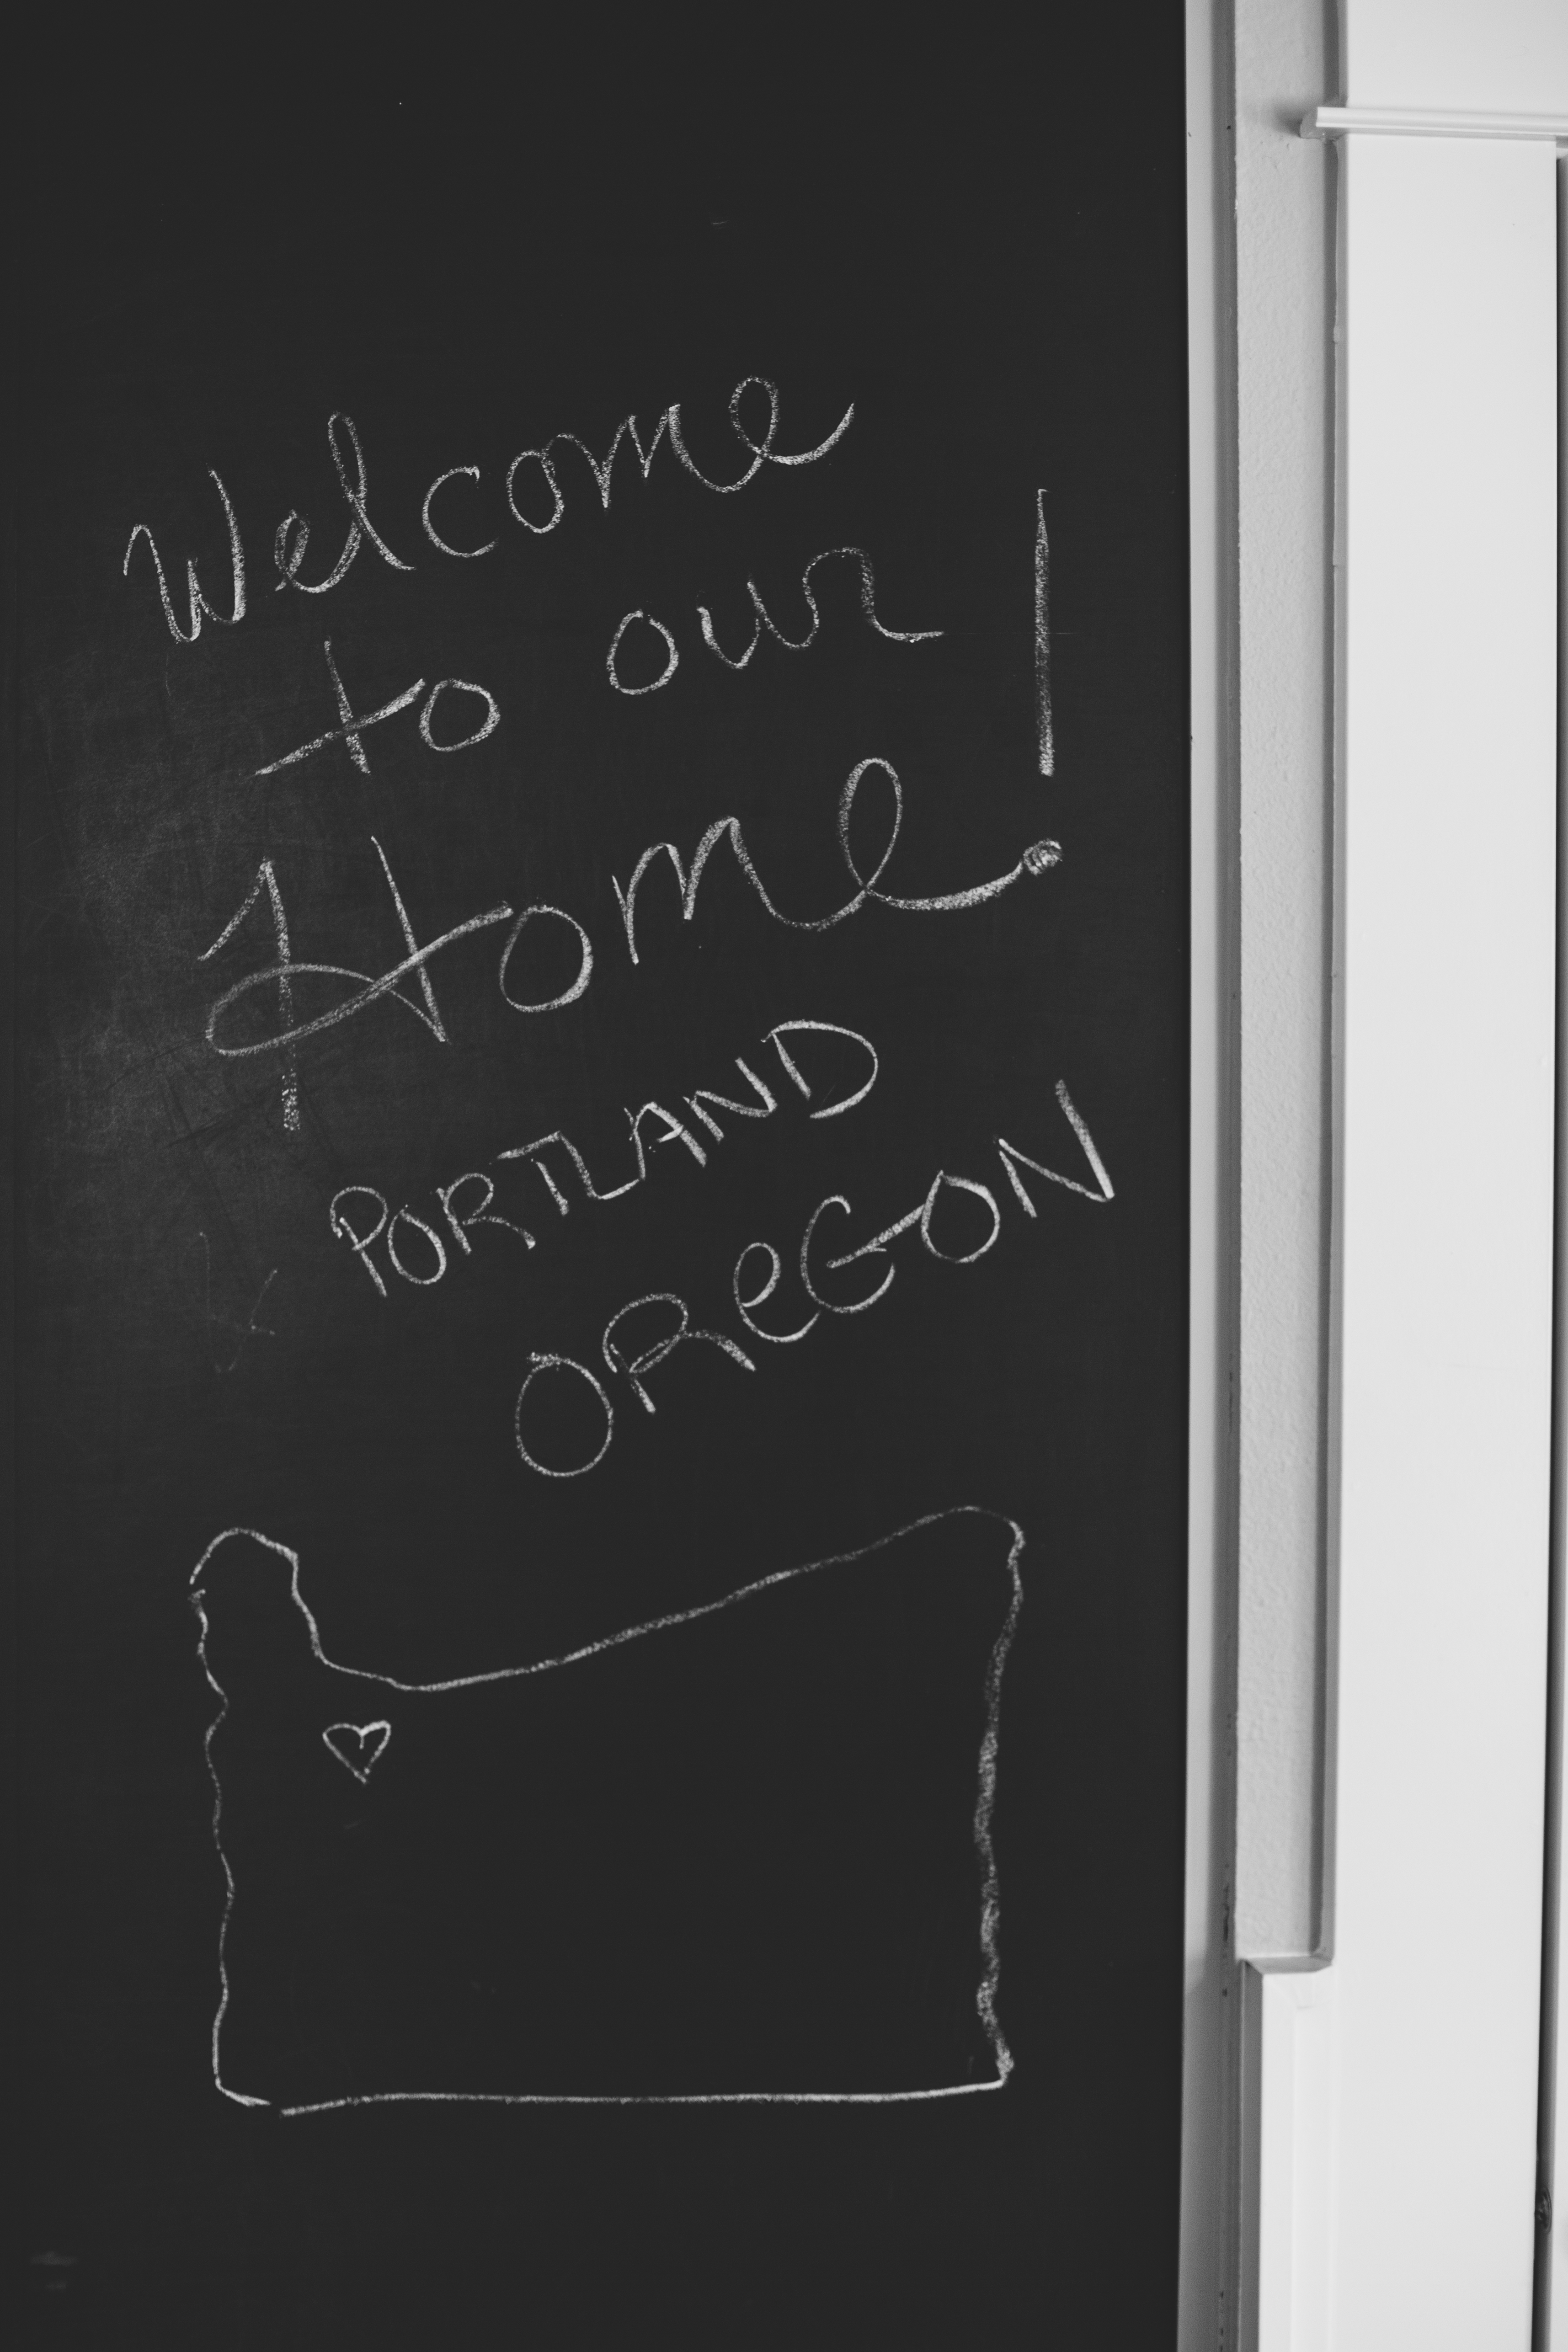 Welcome
to our
Home!
PORTLAND
OReGON